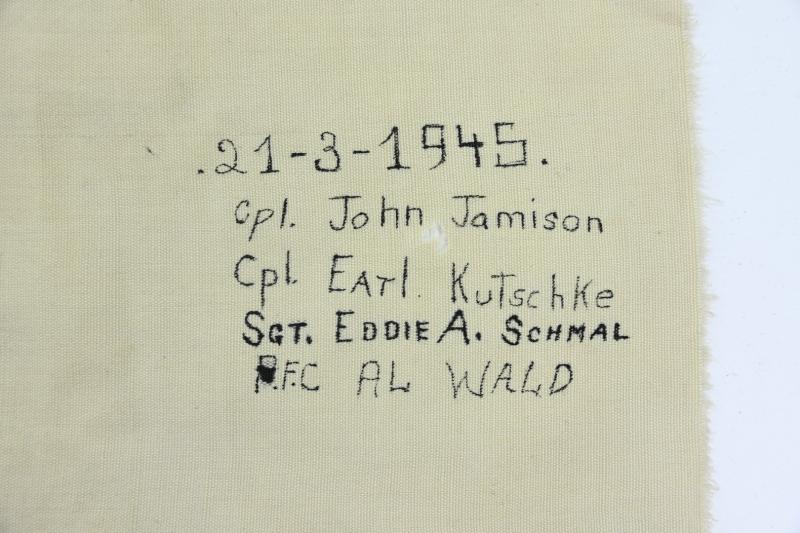 .21-3-1945.
Cpl. John Jamison
Cpl. EArl. KuTschke
SGT. EDDIE A. SCHMAL
P.F.C AL WALD